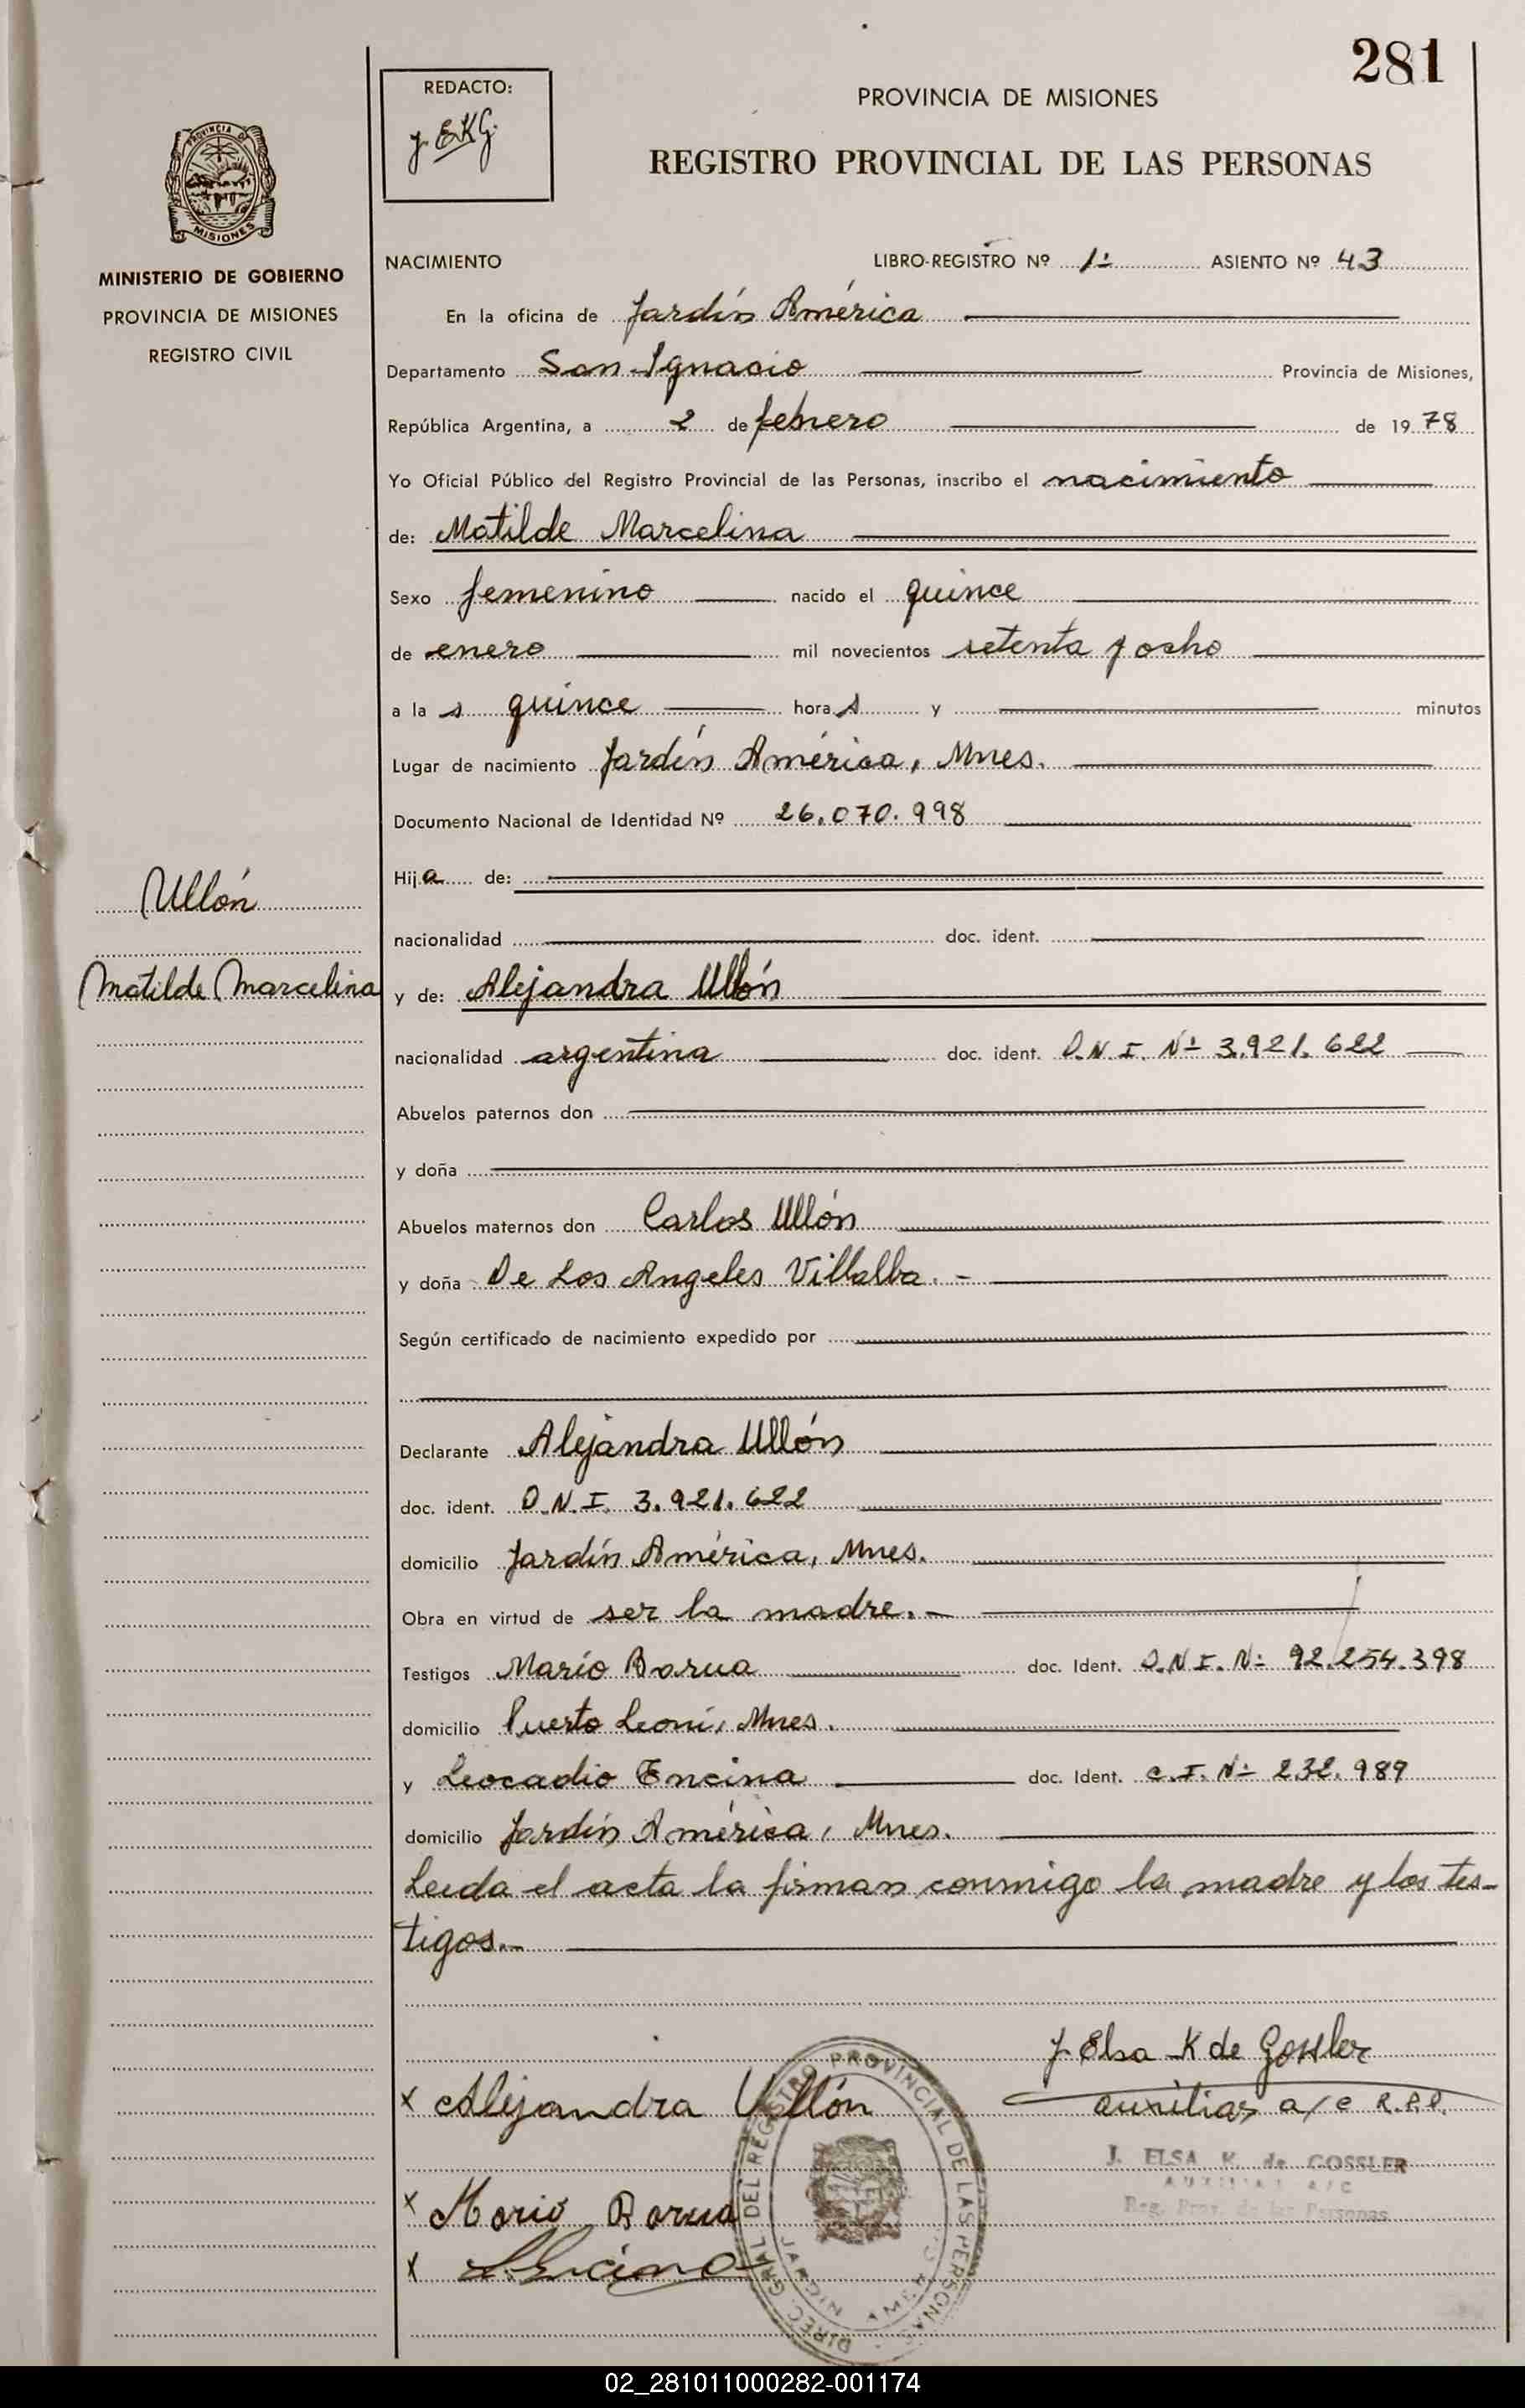 281
REDACTO:
J. EKG.
PROVINCIA DE MISIONES
REGISTRO PROVINCIAL DE LAS PERSONAS
PROVINCIA DE
MISIONES
MINISTERIO DE GOBIERNO
PROVINCIA DE MISIONES
REGISTRO CIVIL
NACIMIENTO LIBRO-REGISTRO Nº 1º ASIENTO Nº 43
En la oficina de Jardín América
Departamento San Ignacio Provincia de Misiones,
República Argentina, a 2 de febrero de 1978
Yo Oficial Público del Registro Provincial de las Personas, inscribo el nacimiento
de: Matilde Marcelina
Sexo femenino nacido el quince
de enero mil novecientos setenta y ocho
a la s quince hora s y minutos
Lugar de nacimiento Jardín América, Mnes.
Documento Nacional de Identidad Nº 26.070.998
Hija de:
Ullón
nacionalidad doc. ident.
Matilde Marcelina
y de: Alejandra Ullón
nacionalidad argentina doc. ident. D.N.I. Nº 3.921.622
Abuelos paternos don
y doña
Abuelos maternos don Carlos Ullón
y doña De Los Angeles Villalba.-
Según certificado de nacimiento expedido por
Declarante Alejandra Ullón
doc. ident. D.N.I. 3.921.622
domicilio Jardín América, Mnes.
Obra en virtud de ser la madre.-
Testigos Mario Barua doc. Ident. D.N.I. Nº 92.254.398
domicilio Puerto Leoni, Mnes.
y Leocadio Encina doc. Ident. C.I. Nº 232.989
domicilio Jardín América, Mnes.
Leida el acta la firman conmigo la madre y los tes-
tigos.-
J. Elsa K de Gossler
auxiliar a/c R.P.P.
x Alejandra Ullón
J. ELSA K. de GOSSLER
AUXILIAR A/C
Reg. Prov. de las Personas
x Mario Barua
x L. Encina
DIREC. GRAL DEL REGISTRO PROVINCIAL DE LAS PERSONAS
02_281011000282-001174